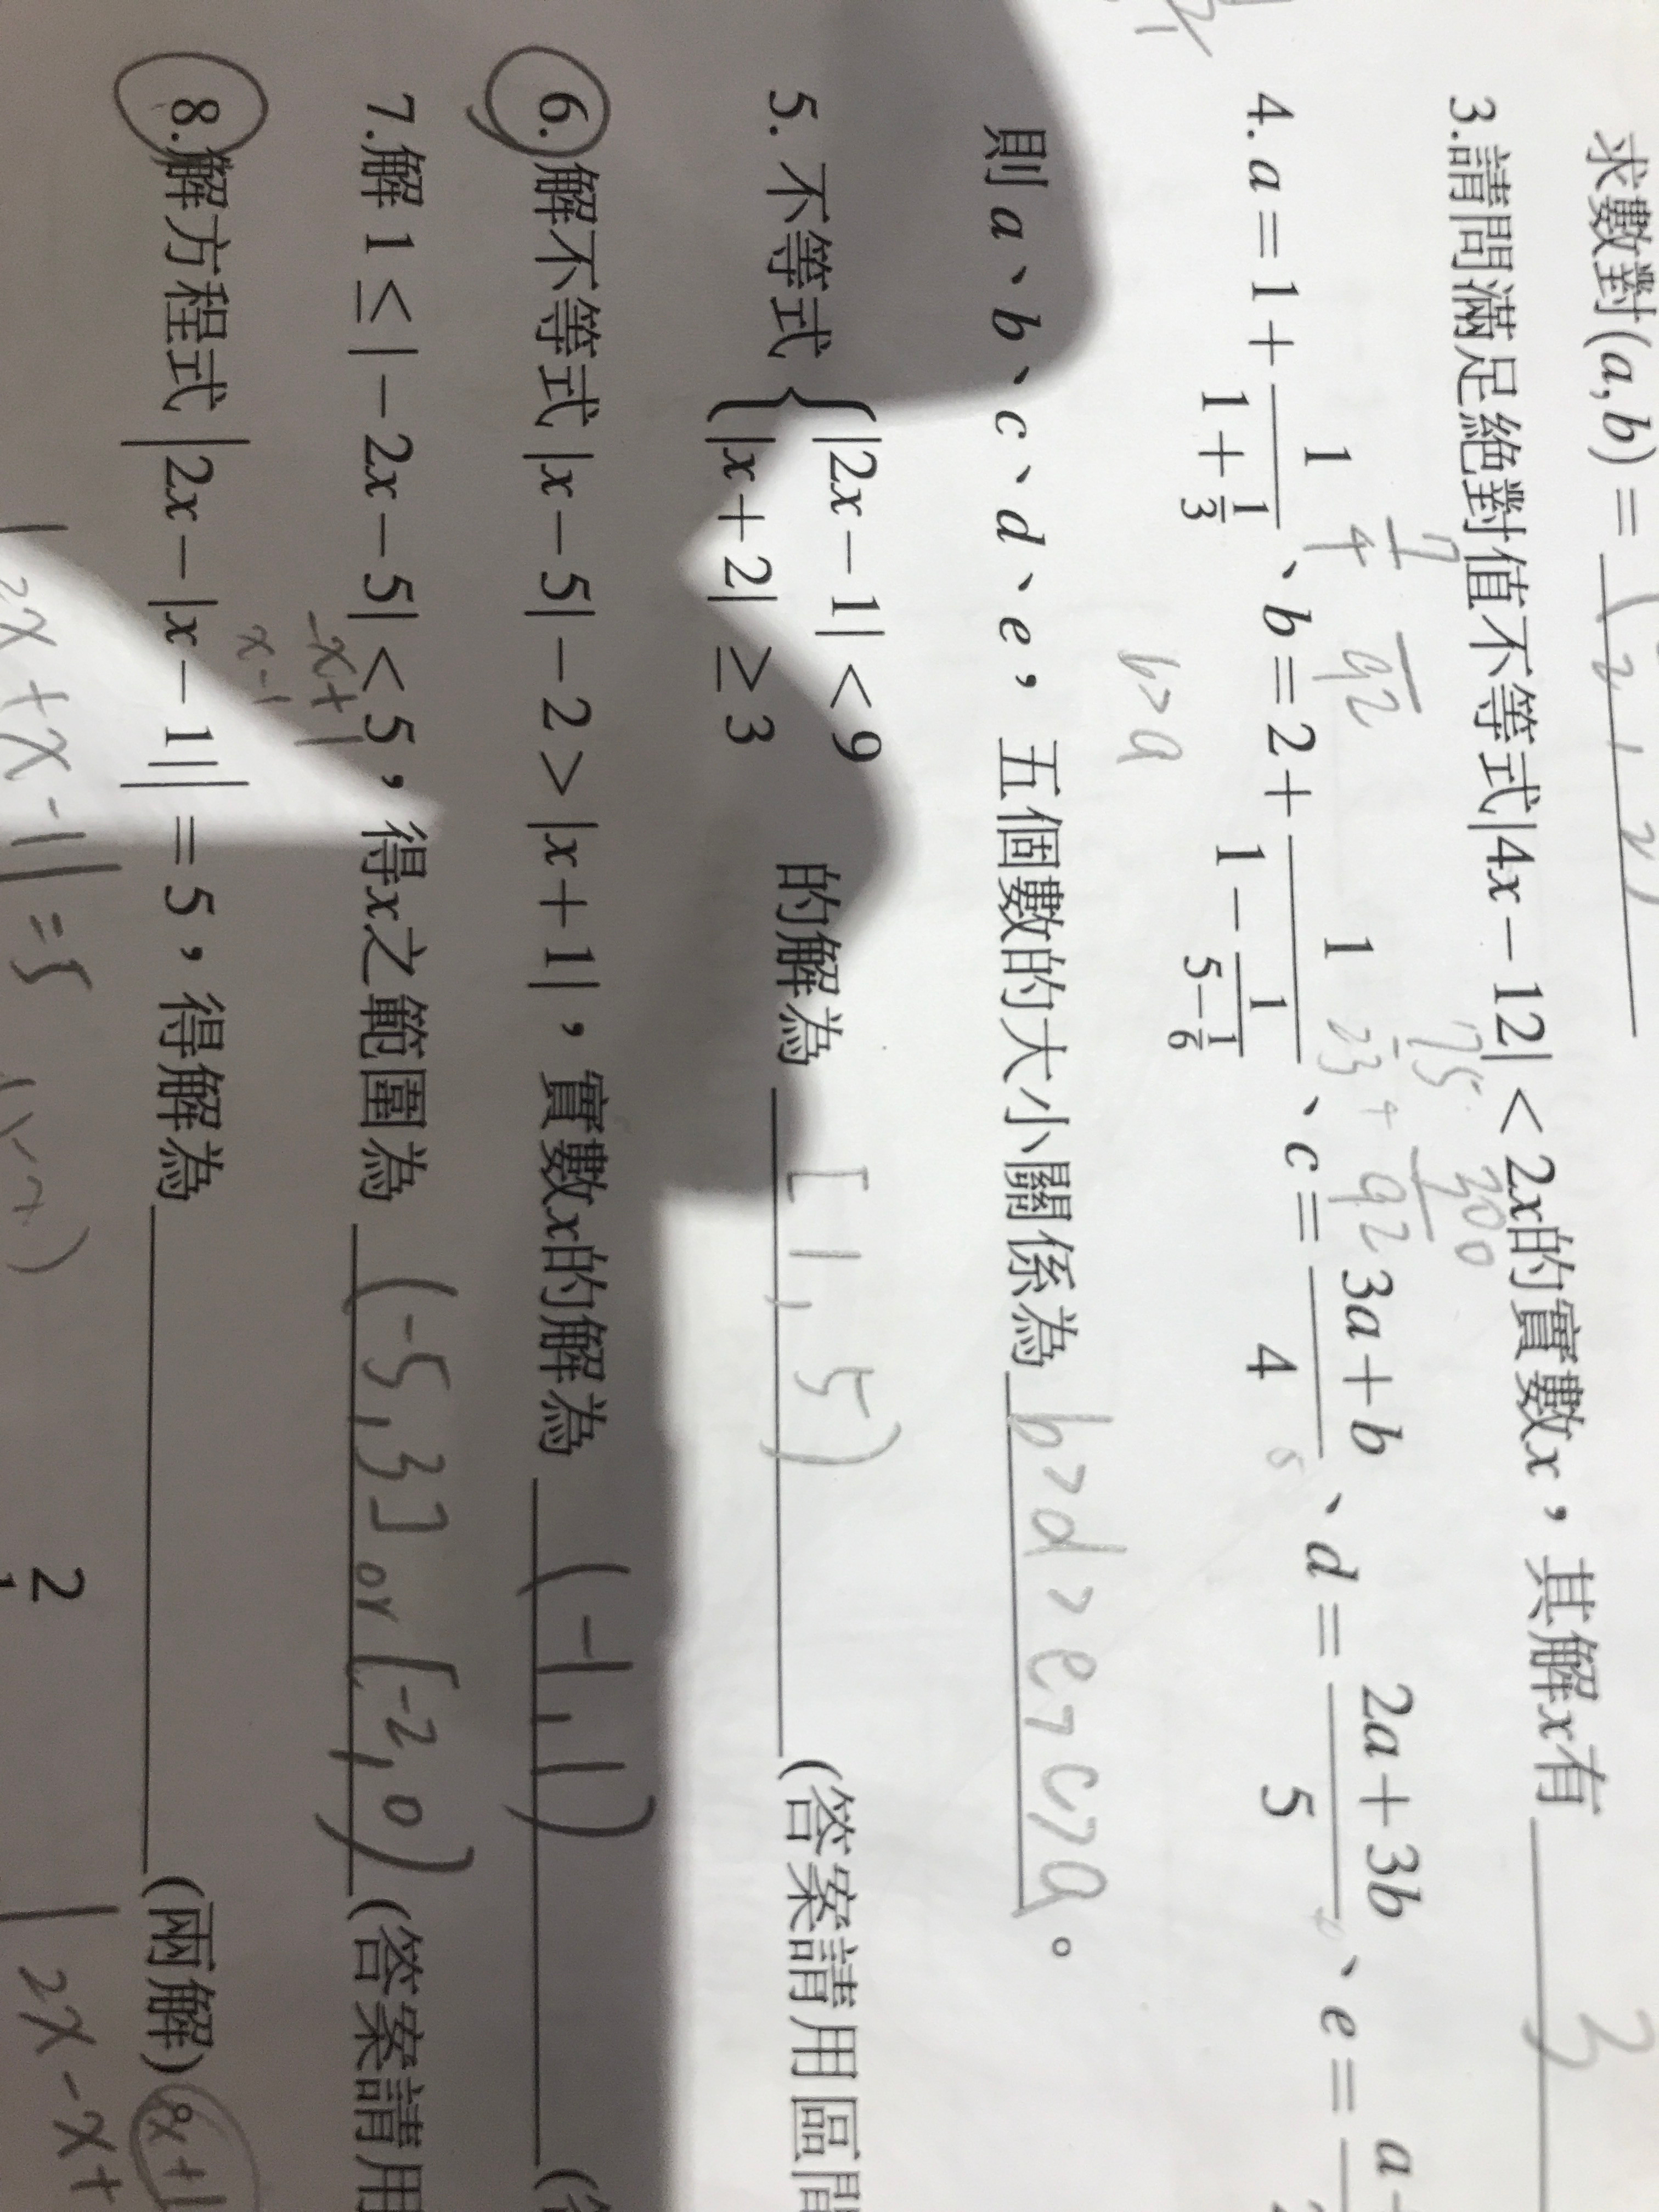 求數對(a,b) =
3.請問滿足絕對值不等式|4x-12|<2x的實數x，其解x有 3
7/4
4. a=1+1/(1+1/3)、b=2+1/(1-1/(5-1/6))、c=(3a+b)/4、d=(2a+3b)/5、e=
b>a
則a、b、c、d、e，五個數的大小關係為 b>d>e>c>a 。
5. 不等式{|2x-1|<9
|x+2| ≥3 的解為 [1,5) (答案請用區間
6.解不等式|x-5|-2>|x+1|，實數x的解為 (-1,1)
7.解1≤|-2x-5|<5，得x之範圍為 (-5,3] or [-2,0) (答案請用
-x+1
x-1
8.解方程式|2x-|x-1||=5，得解為 (兩解)
|2x+x-1|=5
|2x-x+